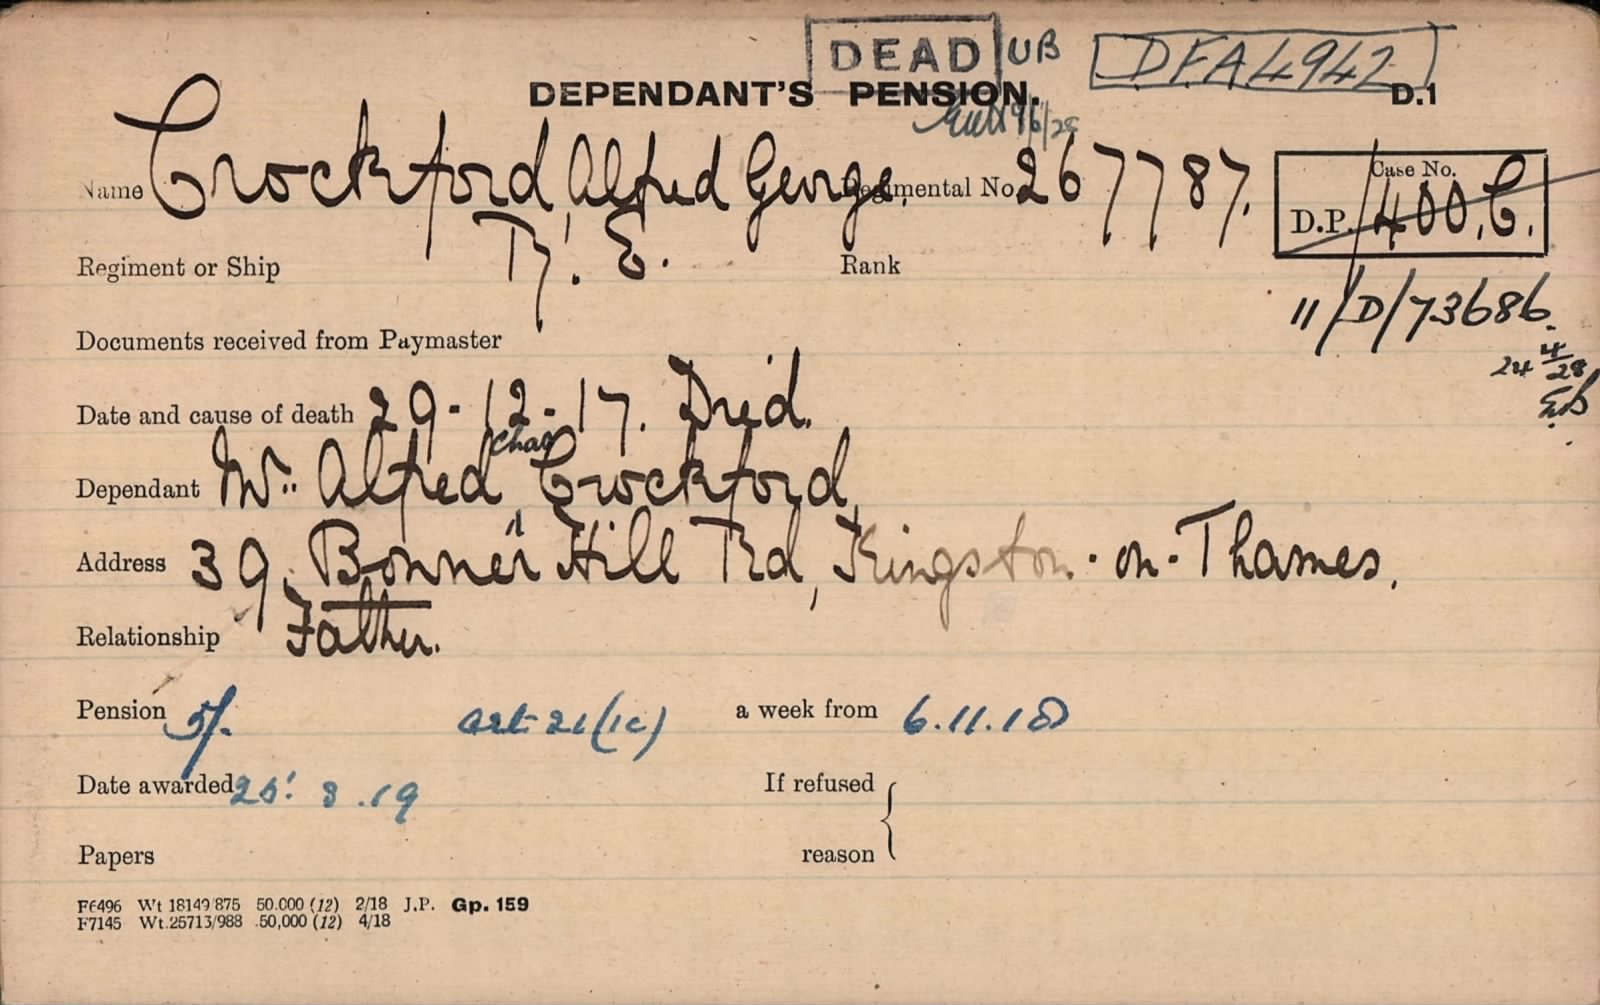 DEAD UB DFA4942
DEPENDANT'S PENSION. D.1
19/6/28
Name Crockford, Alfred George. Regimental No. 267787.
Case No.
D.P. 1400.C.
Regiment or Ship R.E. Rank
11/D/73686.
Documents received from Paymaster
24 4/28
Date and cause of death 29-12-17. Died.
Chas
Dependant Mr. Alfred Crockford,
Address 39. Bonner Hill Rd, Kingston-on-Thames.
Relationship Father.
Pension 5/- art 21(1c) a week from 6.11.18
Date awarded 25. 8.19 If refused
Papers reason
F6496 Wt 18149/875 50.000 (12) 2/18 J.P. Gp. 159
F7145 Wt.25713/988 50,000 (12) 4/18